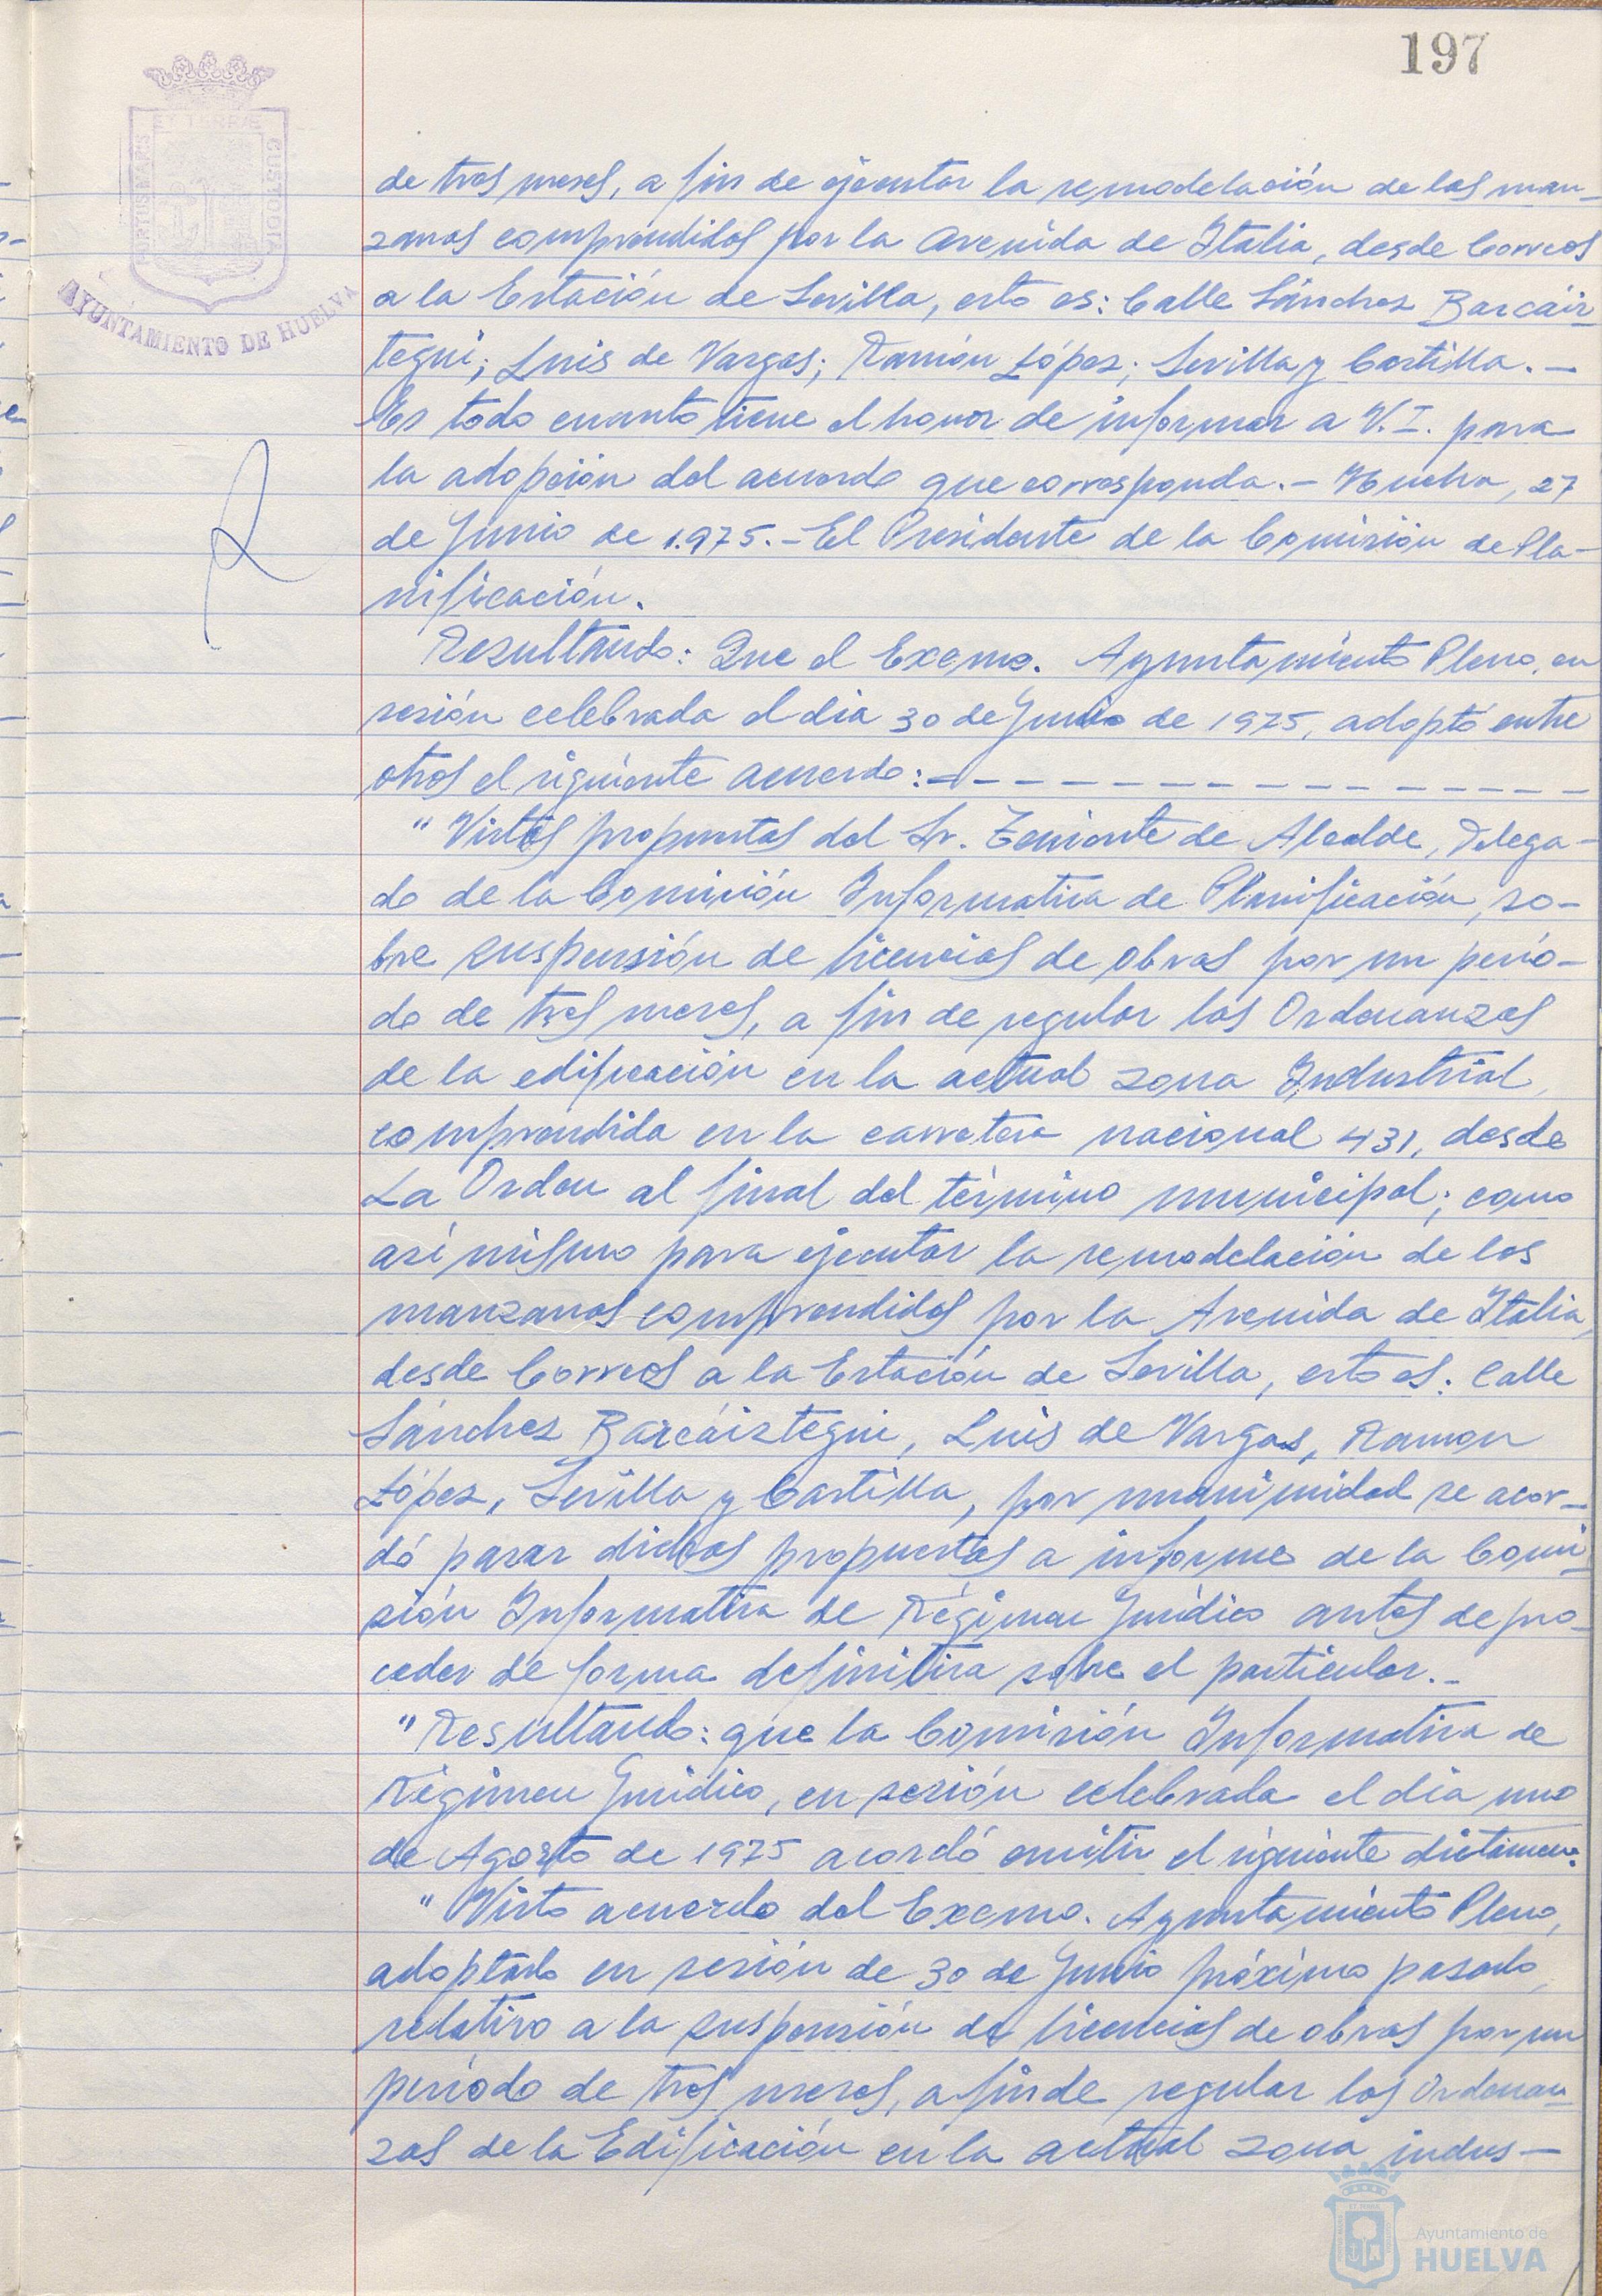 197
PORTUS MARIS ET TERRAE CUSTODIA
AYUNTAMIENTO DE HUELVA
de tres meses, a fin de ejecutar la remodelación de las man-
zanas comprendidas por la Avenida de Italia, desde Correos
a la Estación de Sevilla, esto es: Calle Sánchez Barcáiz-
tegui; Luis de Vargas; Ramón López; Sevilla y Castilla.-
Es todo cuanto tiene el honor de informar a V.I. para
la adopción del acuerdo que corresponda.- Huelva, 27
de Junio de 1.975.- El Presidente de la Comisión de Pla-
nificación.
Resultando: Que el Excmo. Ayuntamiento Pleno, en
sesión celebrada el dia 30 de Junio de 1975, adoptó entre
otros el siguiente acuerdo:- - - - - - - - - - - - - -
"Vistas propuestas del Sr. Teniente de Alcalde, Delega-
do de la Comisión Informativa de Planificación, so-
bre suspensión de licencias de obras por un perio-
do de tres meses, a fin de regular las Ordenanzas
de la edificación en la actual zona Industrial,
comprendida en la carretera nacional 431, desde
La Orden al final del término municipal; como
asi mismo para ejecutar la remodelación de las
manzanas comprendidas por la Avenida de Italia,
desde Correos a la Estación de Sevilla, esto es: Calle
Sánchez Barcáiztegui, Luis de Vargas, Ramon
López, Sevilla y Castilla, por unanimidad se acor-
dó pasar dichas propuestas a informe de la Comi-
sión Informativa de Régimen Jurídico antes de pro-
ceder de forma definitiva sobre el particular.-
"Resultando: que la Comisión Informativa de
Régimen Jurídico, en sesión celebrada el dia uno
de Agosto de 1975 acordó emitir el siguiente dictamen:
"Visto acuerdo del Excmo. Ayuntamiento Pleno,
adoptado en sesión de 30 de Junio próximo pasado,
relativo a la suspensión de licencias de obras por un
período de tres meses, a fin de regular las Ordenan-
zas de la Edificación en la actual zona indus-
Ayuntamiento de
HUELVA